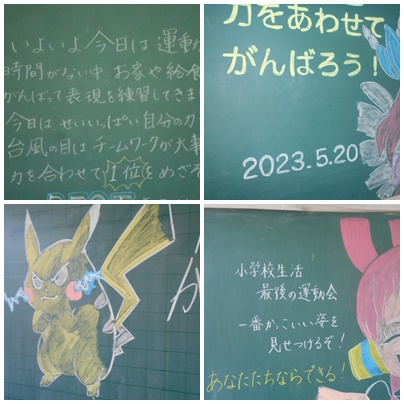 いよいよ今日は運動
時間がない中、お家や給食
がんばって表現を練習してきま
今日は、せいいっぱい自分の力
台風の目はチームワークが大事
力を合わせて1位をめざそ
力をあわせて
がんばろう!
2023.5.20
が
小学校生活
最後の運動会
一番かっこいい姿を
見せつけるぞ!
あなたたちならできる!